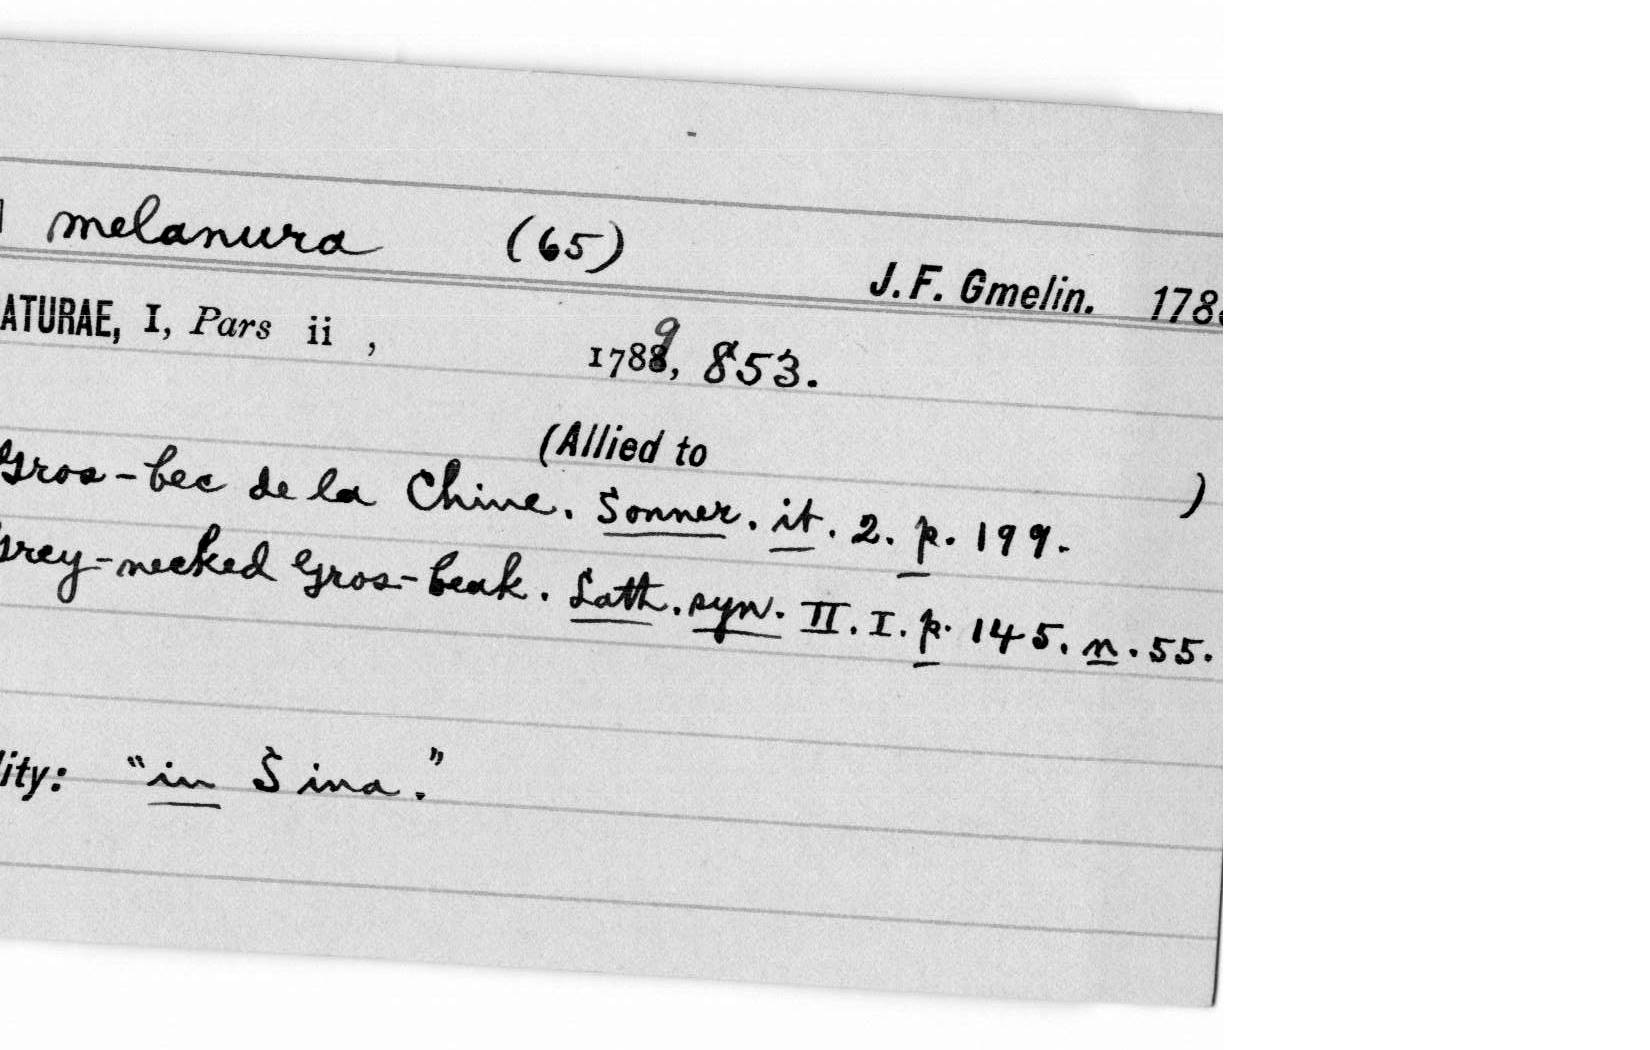 melanura (65)
J. F. Gmelin. 178
ATURAE, I, Pars ii , 1789, 853.
(Allied to )
Gros-bec de la Chine. Sonner. it. 2. p. 199.
Grey-necked Gros-beak. Lath. syn. II. I. p. 145. n. 55.
lity: "in Sina."